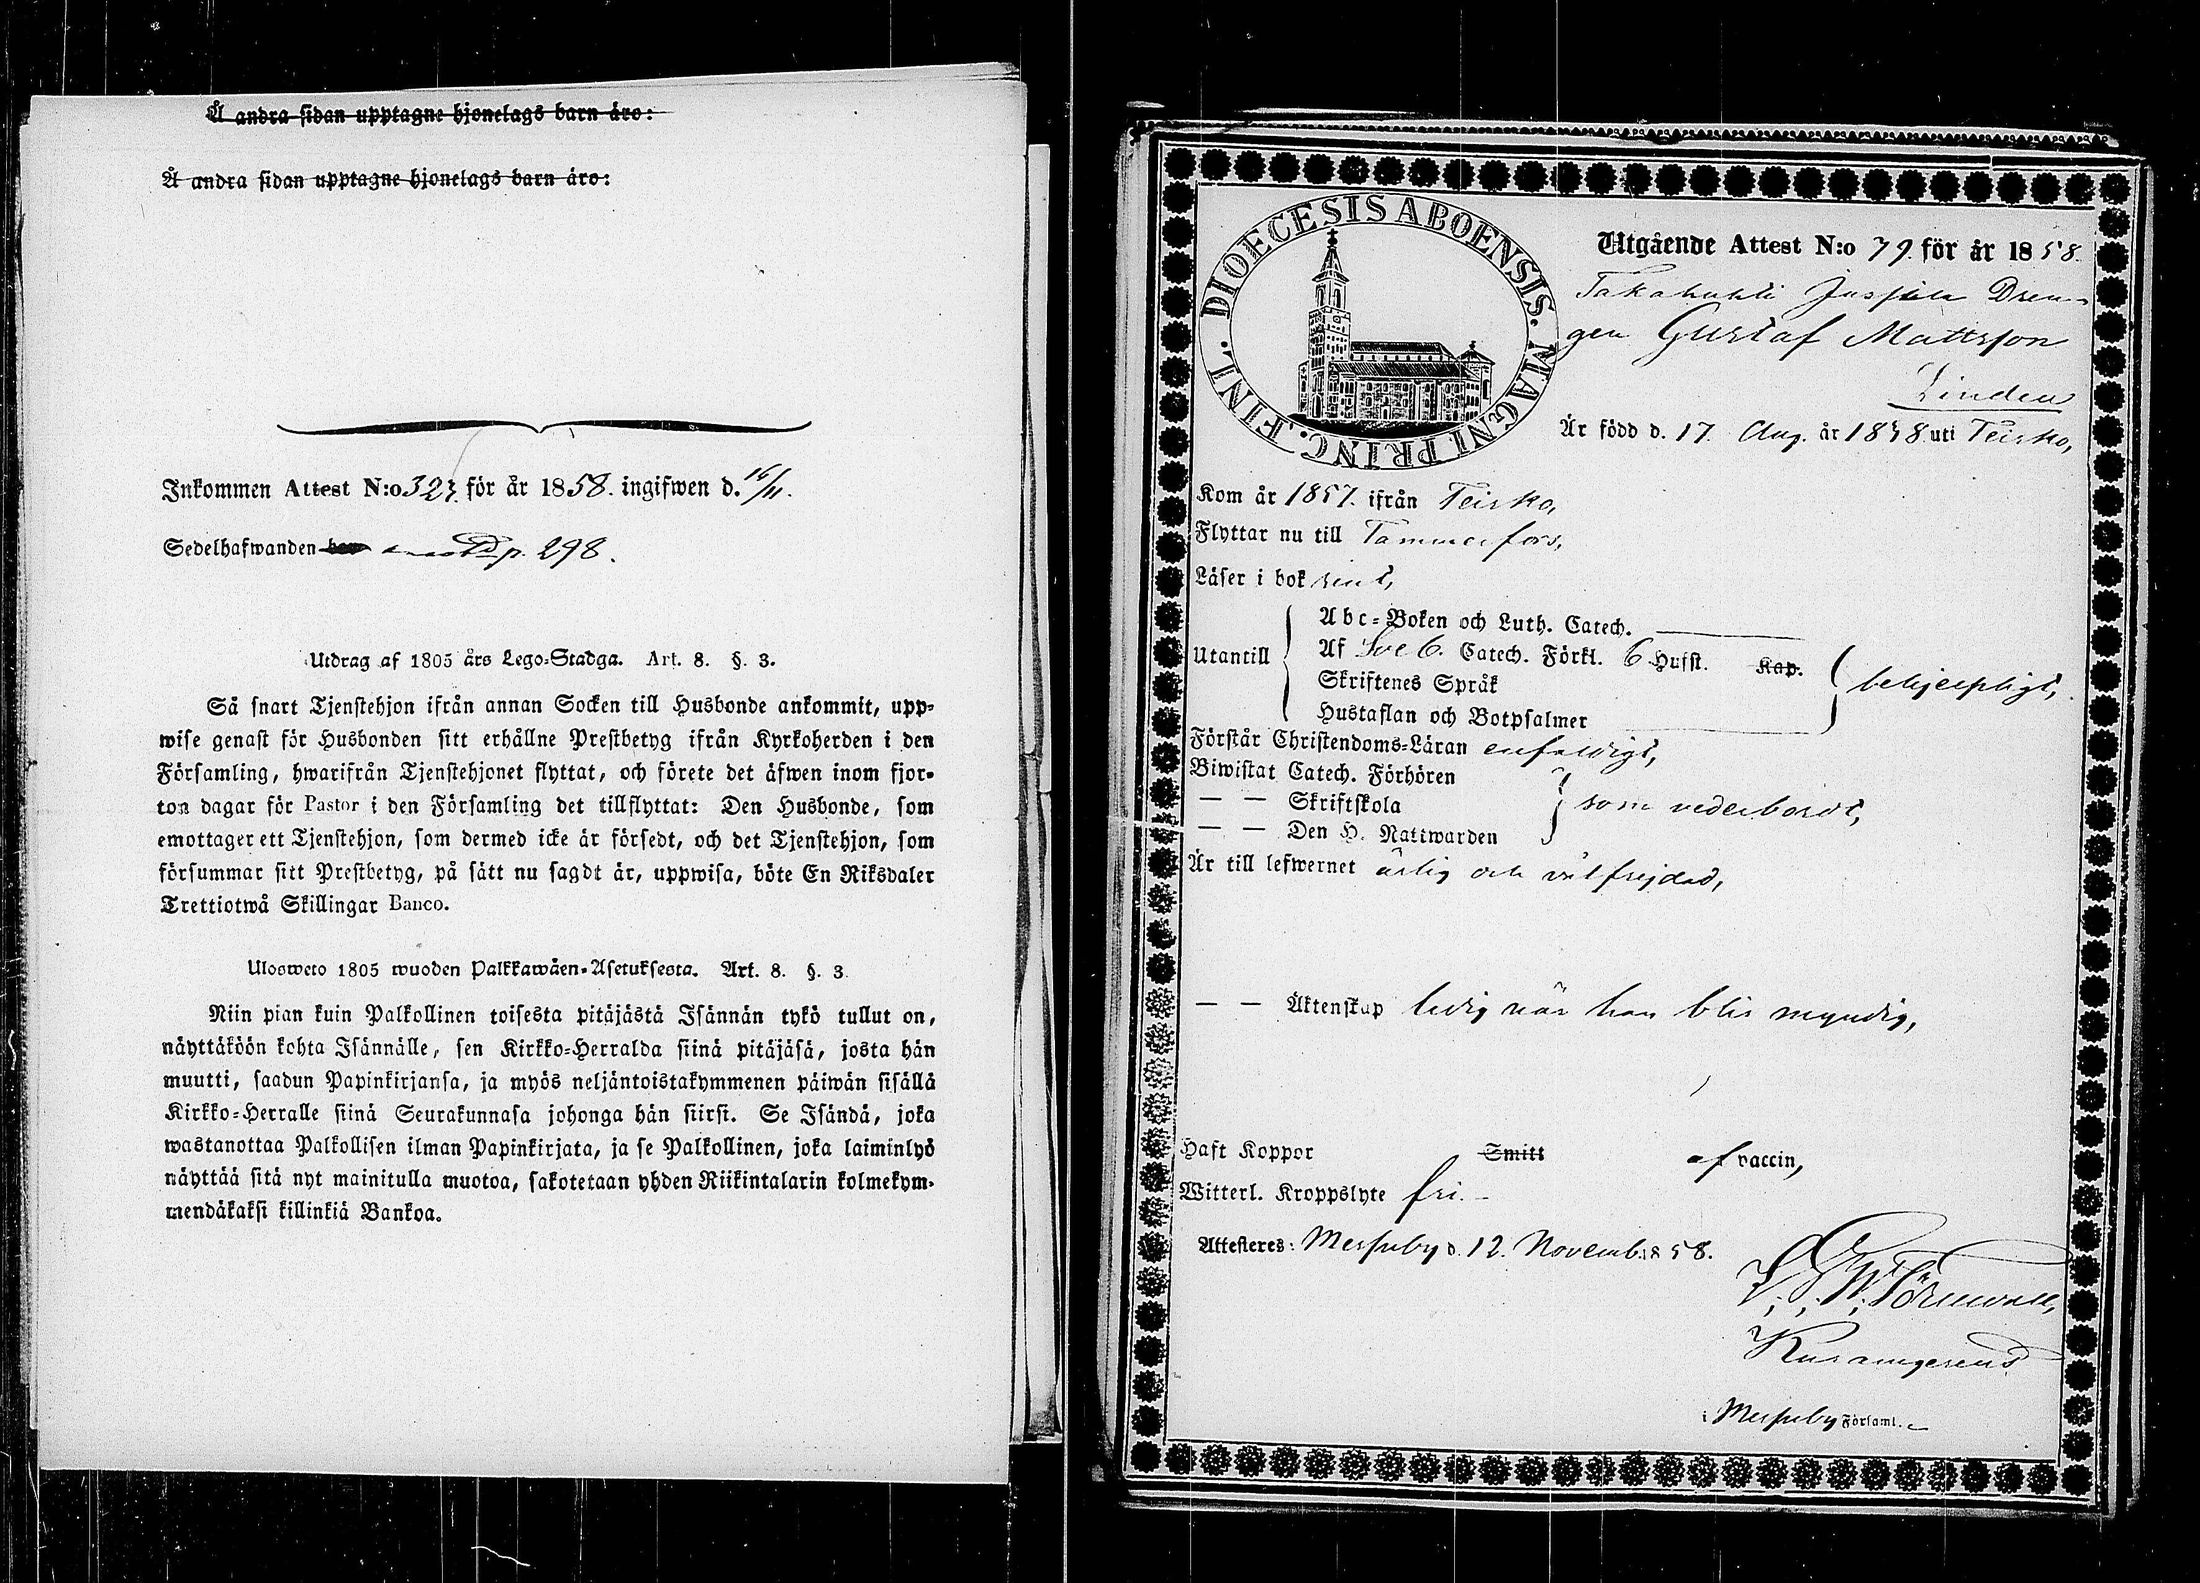 Å andra sidan upptagne hjonelags barn äro:
Å andra sidan upptagne hjonelags barn äro:
Inkommen Attest N:o 323. för år 1858. ingifwen d. 16/11.
Sedelhafwanden p. 298.
Utdrag af 1805 års Lego-Stadga. Art. 8. §. 3.
Så snart Tjenstehjon ifrån annan Socken till Husbonde ankommit, upp-
wise genast för Husbonden sitt erhållne Prestbetyg ifrån Kyrkoherden i den
Församling, hwarifrån Tjenstehjonet flyttat, och förete det äfwen inom fjor-
ton dagar för Pastor i den Församling det tillflyttat: Den Husbonde, som
emottager ett Tjenstehjon, som dermed icke är försedt, och det Tjenstehjon, som
försummar sitt Prestbetyg, på sätt nu sagdt är, uppwisa, böte En Riksdaler
Trettiotwå Skillingar Banco.
Ulosweto 1805 wuoden Palkkawäen-Asetuksesta. Art. 8. §. 3.
Niin pian kuin Palkollinen toisesta pitäjästä Isännän tykö tullut on,
näyttäköön kohta Isännälle, sen Kirkko-Herralda siinä pitäjäsä, josta hän
muutti, saadun Papinkirjansa, ja myös neljäntoistakymmenen päiwän sisällä
Kirkko-Herralle siinä Seurakunnasa johonga hän siirsi. Se Isändä, joka
wastanottaa Palkollisen ilman Papinkirjata, ja se Palkollinen, joka laiminlyö
näyttää sitä nyt mainitulla muotoa, sakotetaan yhden Riikintalarin kolmekym-
mendäkaksi killinkiä Bankoa.
DIOECESIS ABOENSIS. MAGNI PRINC. FINL.
Utgående Attest N:o 79. för år 1858.
Takahuhti Jussila Dren-
gen Gustaf Mattsson
Linden
Är född d. 17. Aug. år 1838 uti Teisko,
Kom år 1857. ifrån Teisko,
Flyttar nu till Tammerfors,
Läser i bok rent,
Utantill
Abc-Boken och Luth. Catech.
Af Sve b. Catech. Förkl. 6 Hufst. Kap.
Skriftenes Språk
Hustaflan och Botpsalmer
behjelpligt,
Förstår Christendoms-Läran enfaldigt,
Biwistat Catech. Förhören
— — Skriftskola
— — Den H. Nattwarden
som vederbordt,
Är till lefwernet ärlig och välfrejdad,
— — Äktenskap ledig når han blir myndig,
Haft Koppor Smitt af vaccin,
Witterl. Kroppslyte fri. –
Attesteres: Messuby d. 12. Novemb. 1858.
Törnwall,
i Messuby Församl.